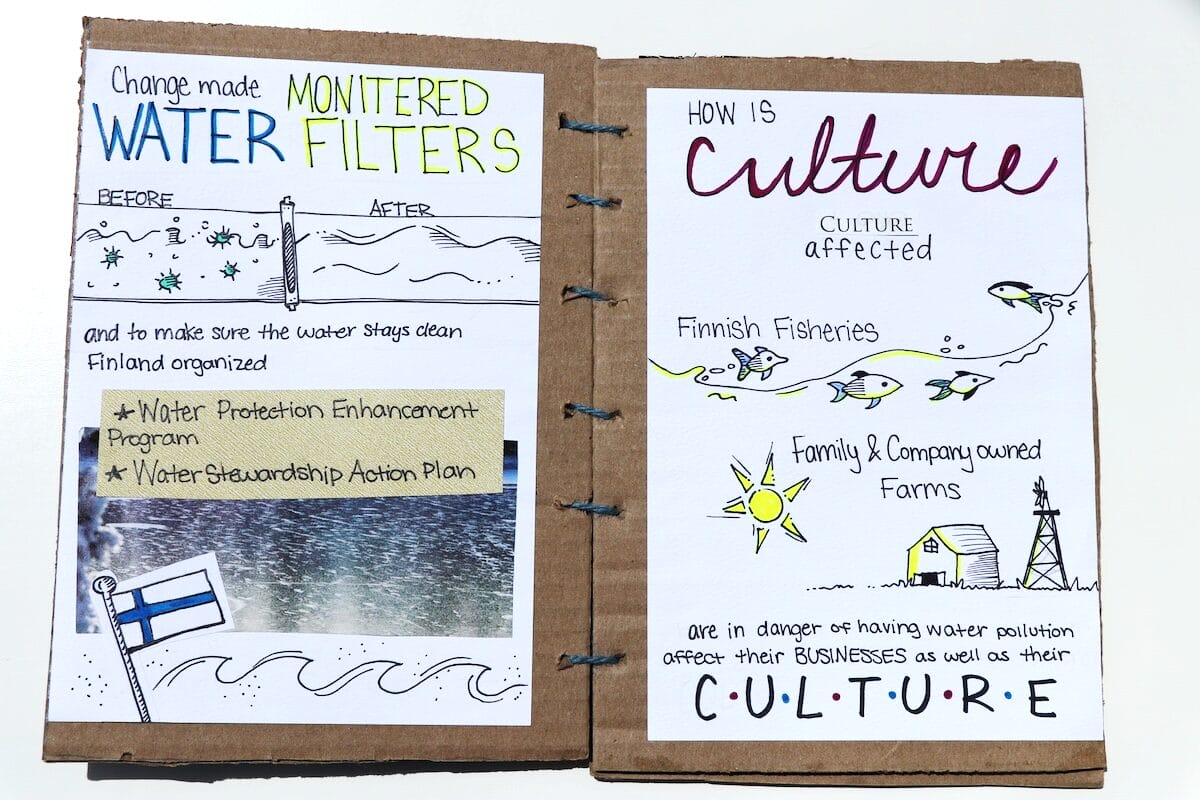 Change made
WATER MONITERED
FILTERS
BEFORE
AFTER
and to make sure the water stays clean
Finland organized
★ Water Protection Enhancement
Program
★ Water Stewardship Action Plan
HOW IS
Culture
CULTURE
affected
Finnish Fisheries
Family & Company owned
Farms
are in danger of having water pollution
affect their BUSINESSES as well as their
C•U•L•T•U•R•E